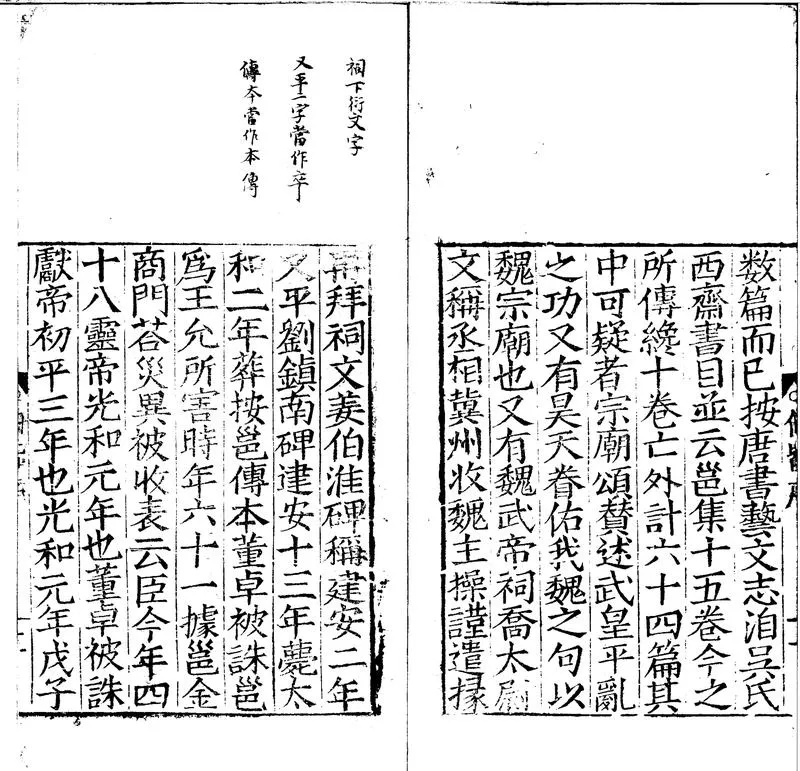 数篇而已按唐書藝文志洎吳氏
西齋書目並云邕集十五卷今之
所傳纔十卷亡外計六十四篇其
中可疑者宗廟頌贊述武皇平亂
之功又有昊天眷佑我魏之句以
魏宗廟也又有魏武帝祠喬太尉
文稱丞相兾州牧魏主操謹遣掾
祠下衍文字
又平二字當作卒
傳夲當作本傳
再拜祠文姜伯淮碑稱建安二年
又平劉鎮南碑建安十三年薨太
和二年葬按邕傳本董卓被誅邕
為王允所害時年六十一據邕金
商門荅災異被收表云臣今年四
十八靈帝光和元年也董卓被誅
獻帝初平三年也光和元年戊子